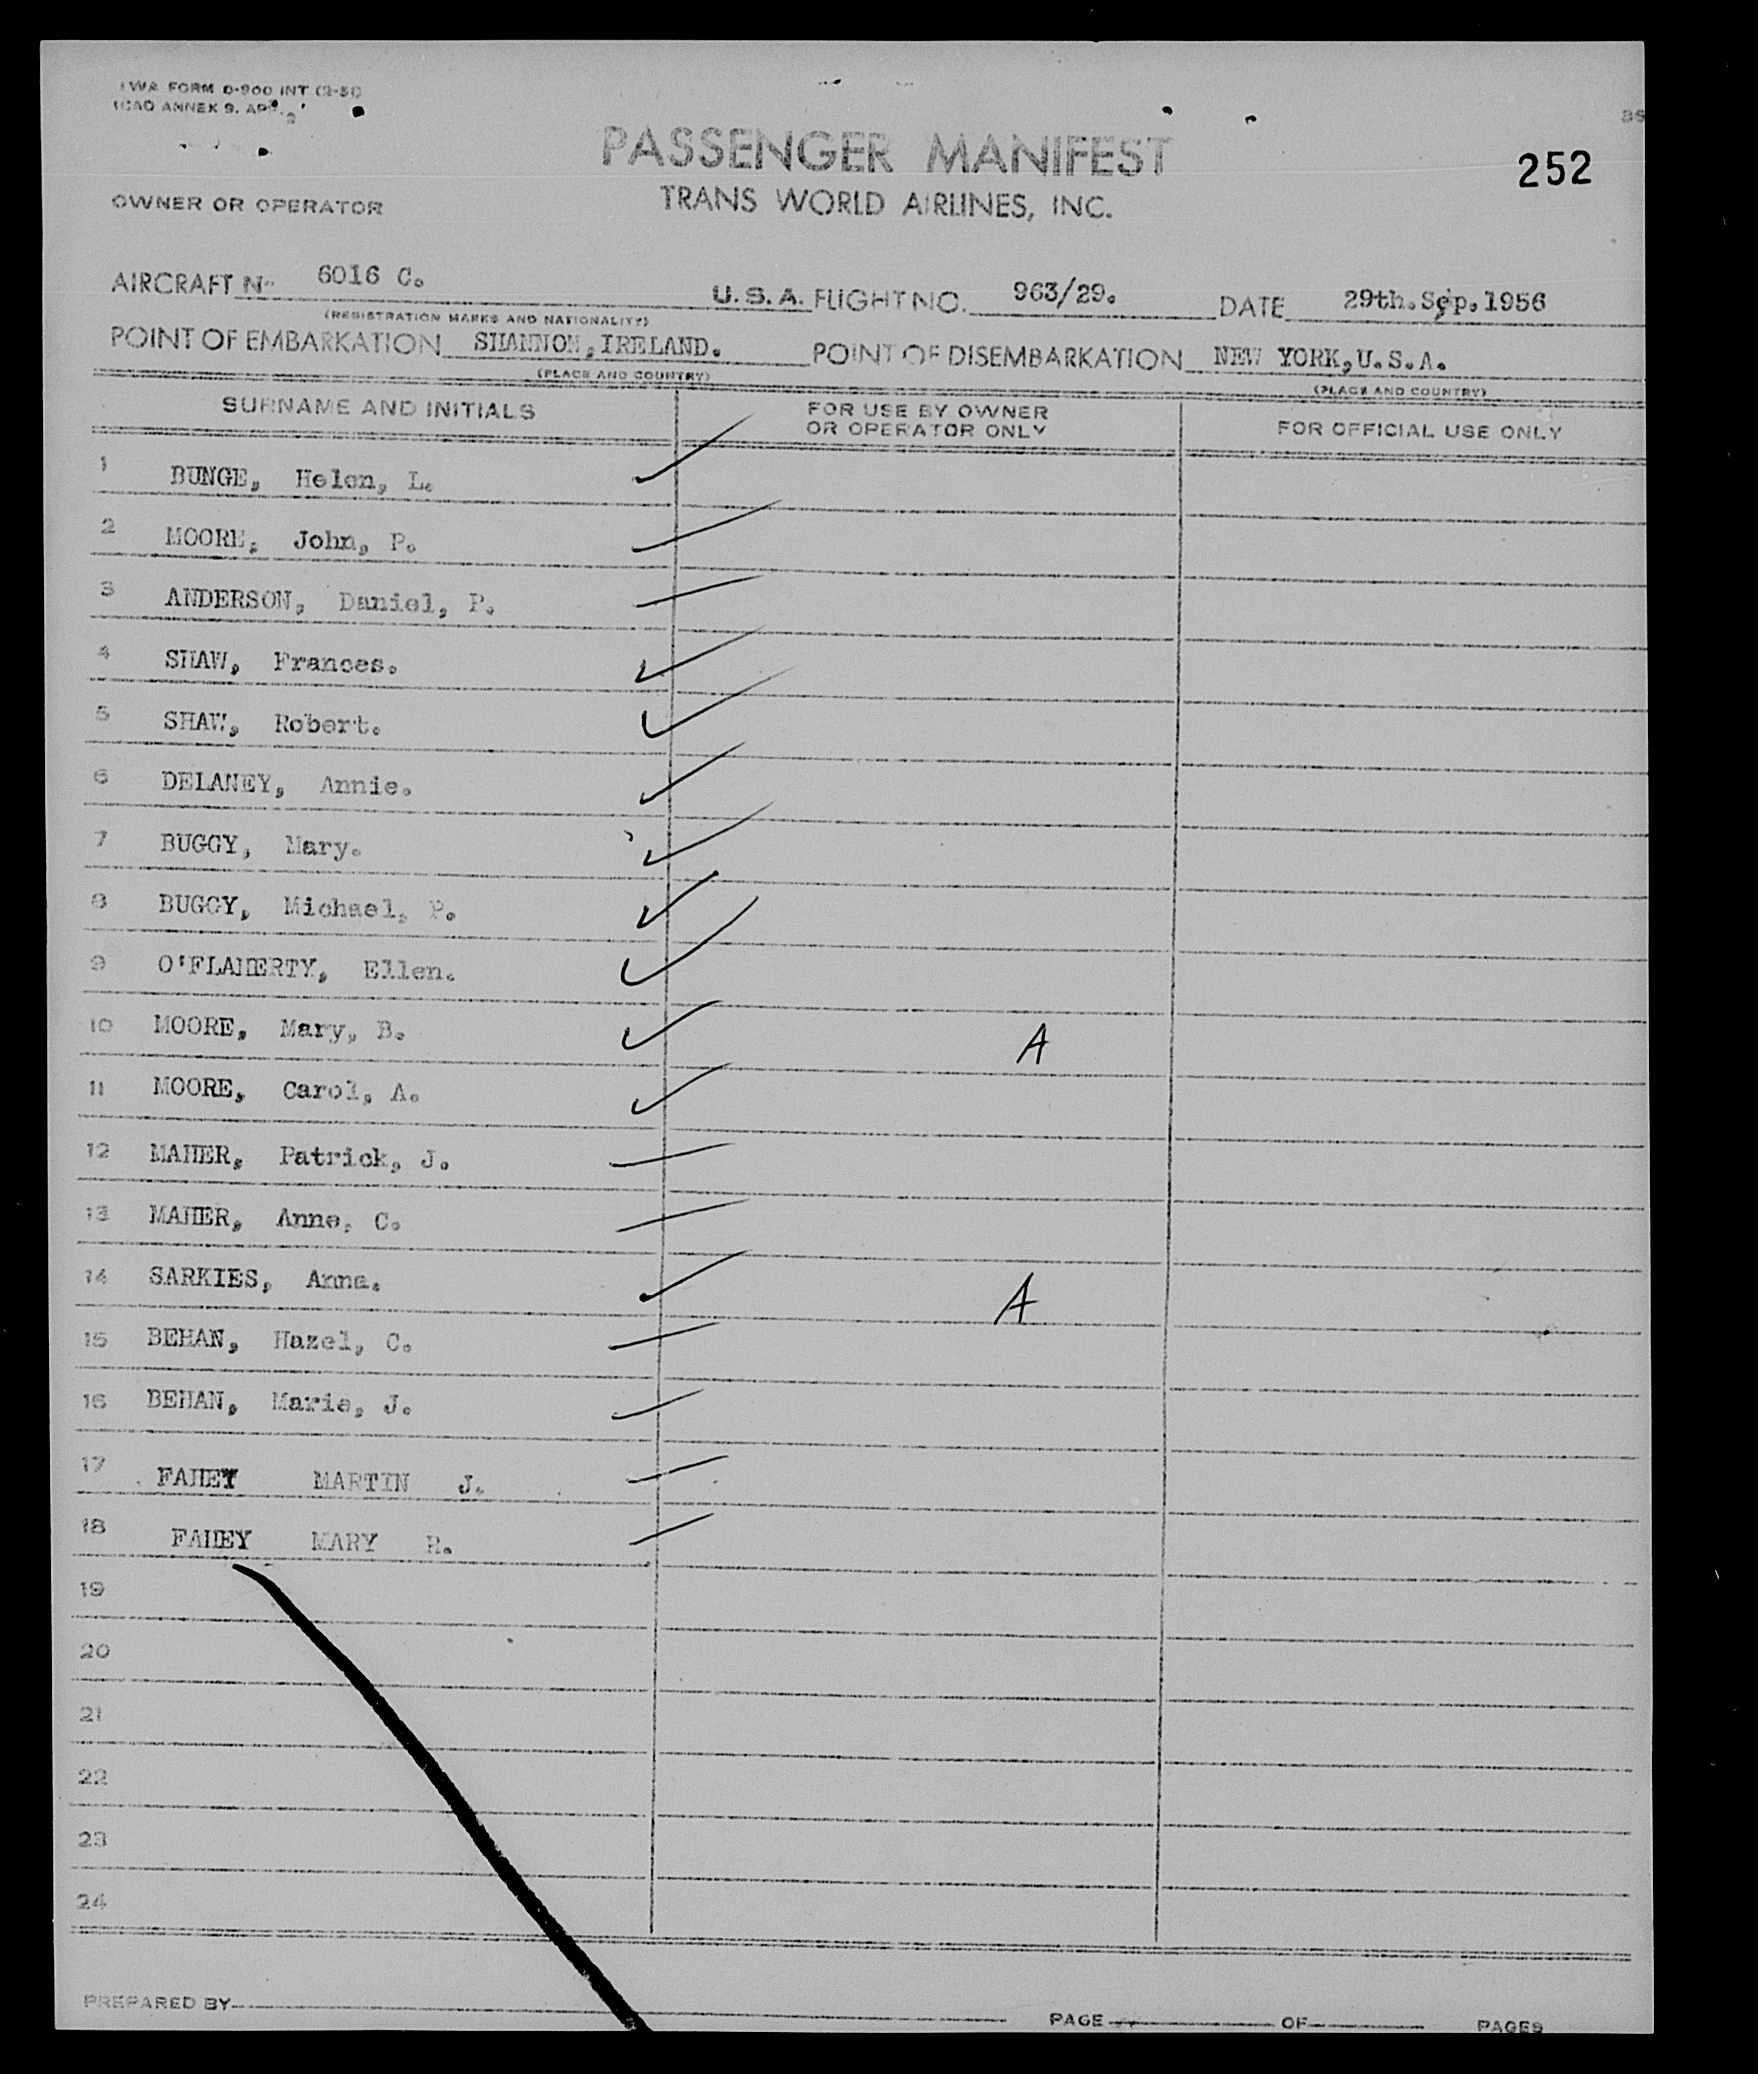 TWA FORM 0-900 INT (2-51)
ICAO ANNEX 9. APP. 2
PASSENGER MANIFEST
252
OWNER OR OPERATOR TRANS WORLD AIRLINES, INC.
AIRCRAFT No. 6016 C. U.S.A. FLIGHT NO. 963/29. DATE 29th.Sep.1956
(REGISTRATION MARKS AND NATIONALITY)
POINT OF EMBARKATION SHANNON,IRELAND. POINT OF DISEMBARKATION NEW YORK,U.S.A.
(PLACE AND COUNTRY) (PLACE AND COUNTRY)
SURNAME AND INITIALS FOR USE BY OWNER OR OPERATOR ONLY FOR OFFICIAL USE ONLY
1 BUNGE, Helen, L.
2 MOORE, John, P.
3 ANDERSON, Daniel, P.
4 SHAW, Frances.
5 SHAW, Robert.
6 DELANEY, Annie.
7 BUGGY, Mary.
8 BUGGY, Michael, P.
9 O'FLAHERTY, Ellen.
10 MOORE, Mary, B. A
11 MOORE, Carol, A.
12 MAHER, Patrick, J.
13 MAHER, Anne, C.
14 SARKIES, Anna. A
15 BEHAN, Hazel, C.
16 BEHAN, Marie, J.
17 FAHEY MARTIN J.
18 FAHEY MARY
19
20
21
22
23
24
PREPARED BY PAGE OF PAGES